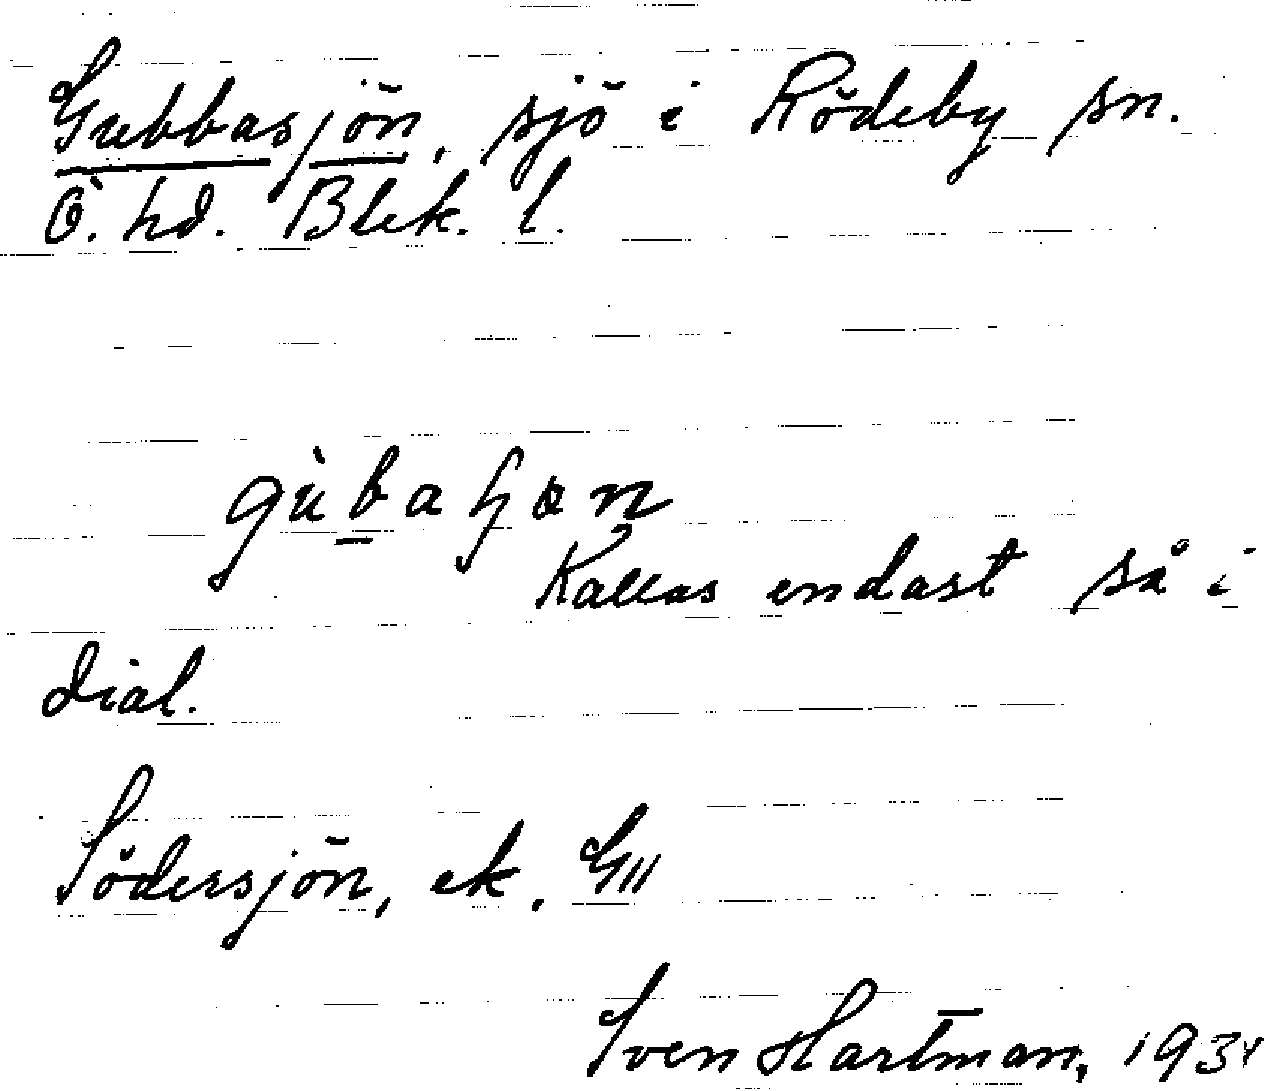 Gubbasjön, sjö i Rödeby sn.
Ö. hd. Blek. l.
gùbaɧøn
Kallas endast så i
dial.
Södersjön, ek. G//
Sven Hartman, 1931